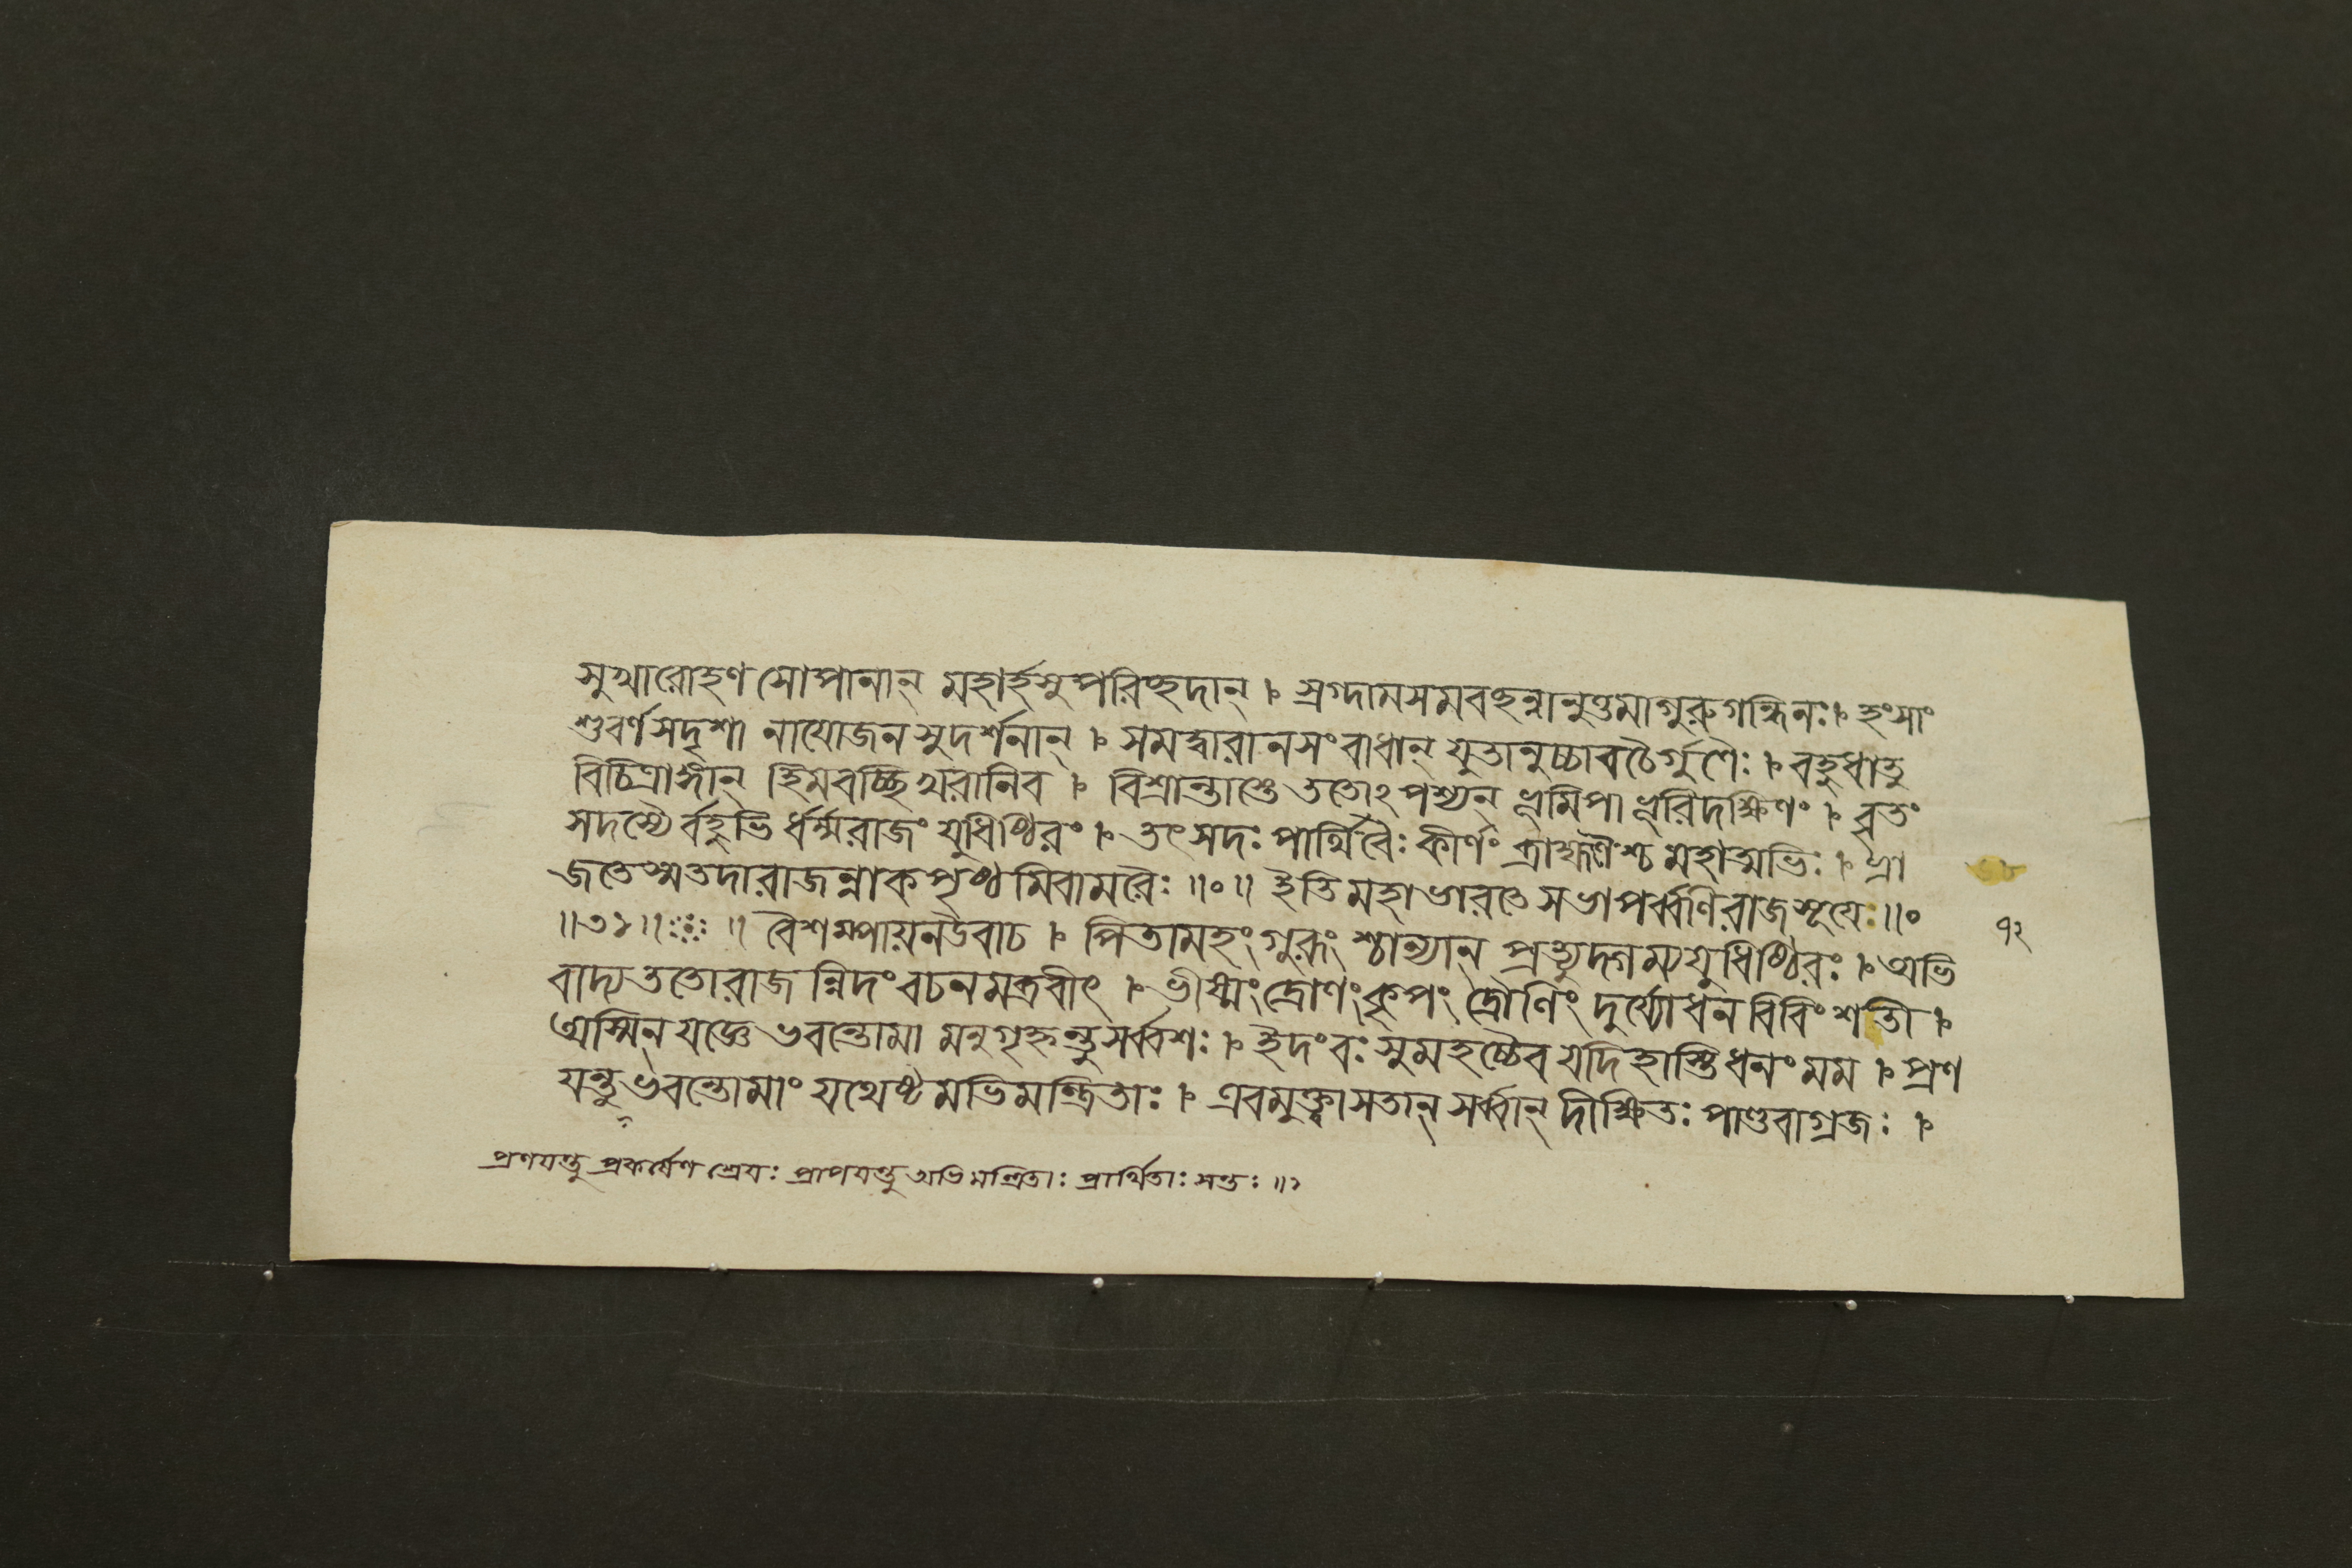 সুখারোহণসোপানান্ মহার্হসুপরিচ্ছদান্ । স্রগ্দামসমবচ্ছন্নানুত্তমাগুরুগন্ধিনঃ । হংসাং
শুবর্ণসদৃশা নাযোজনসুদর্শনান্ । সমদ্বারানসংবাধান্ যুতানুচ্চাবচৈর্গুণৈঃ । বহুধাতু
বিচিত্রাঙ্গান্ হিমবচ্ছিখরানিব । বিশ্রান্তাস্তে ততোঽপশ্যন্ ভূমিপা ভূরিদক্ষিণং । বৃতং
সদস্যৈর্বহুভি র্ধর্ম্মরাজং যুধিষ্ঠিরং । তৎ সদঃ পার্থিবৈঃ কীর্ণং ব্রাহ্মণৈশ্চ মহাত্মভিঃ । ভ্রা
জতেস্মতদারাজন্নাকপৃষ্ঠমিবামরৈঃ ॥০॥ ইতি মহাভারতে সভাপর্ব্বণিরাজসূযে ॥০
॥৩১॥ ॥ বৈশম্পায়নউবাচ । পিতামহং গুরূং শ্চান্যান্ প্রত্যুদ্গম্যযুধিষ্ঠিরঃ । অভি
বাদ্য ততোরাজ ন্নিদং বচনমব্রবীৎ । ভীষ্মং দ্রোণং কৃপং দ্রৌণিং দুর্য্যোধনবিবিংশতী ।
অস্মিন্ যজ্ঞে ভবন্তোমা মনুগৃহ্নন্তুসর্ব্বশঃ । ইদং বঃ সুমহচ্চৈব যদিহাস্তি ধনং মম । প্রণ
যন্তু ভবন্তোমাং যথেষ্টমভিমন্ত্রিতাঃ । এবমুক্ত্বাসতান্ সর্ব্বান্ দীক্ষিতঃ পাণ্ডবাগ্রজঃ ।
প্রণযন্তু প্রকর্ষেণ শ্রেযঃ প্রাপযন্তু অভিমন্ত্রিতাঃ প্রার্থিতাঃ সন্তঃ ॥১
৭২